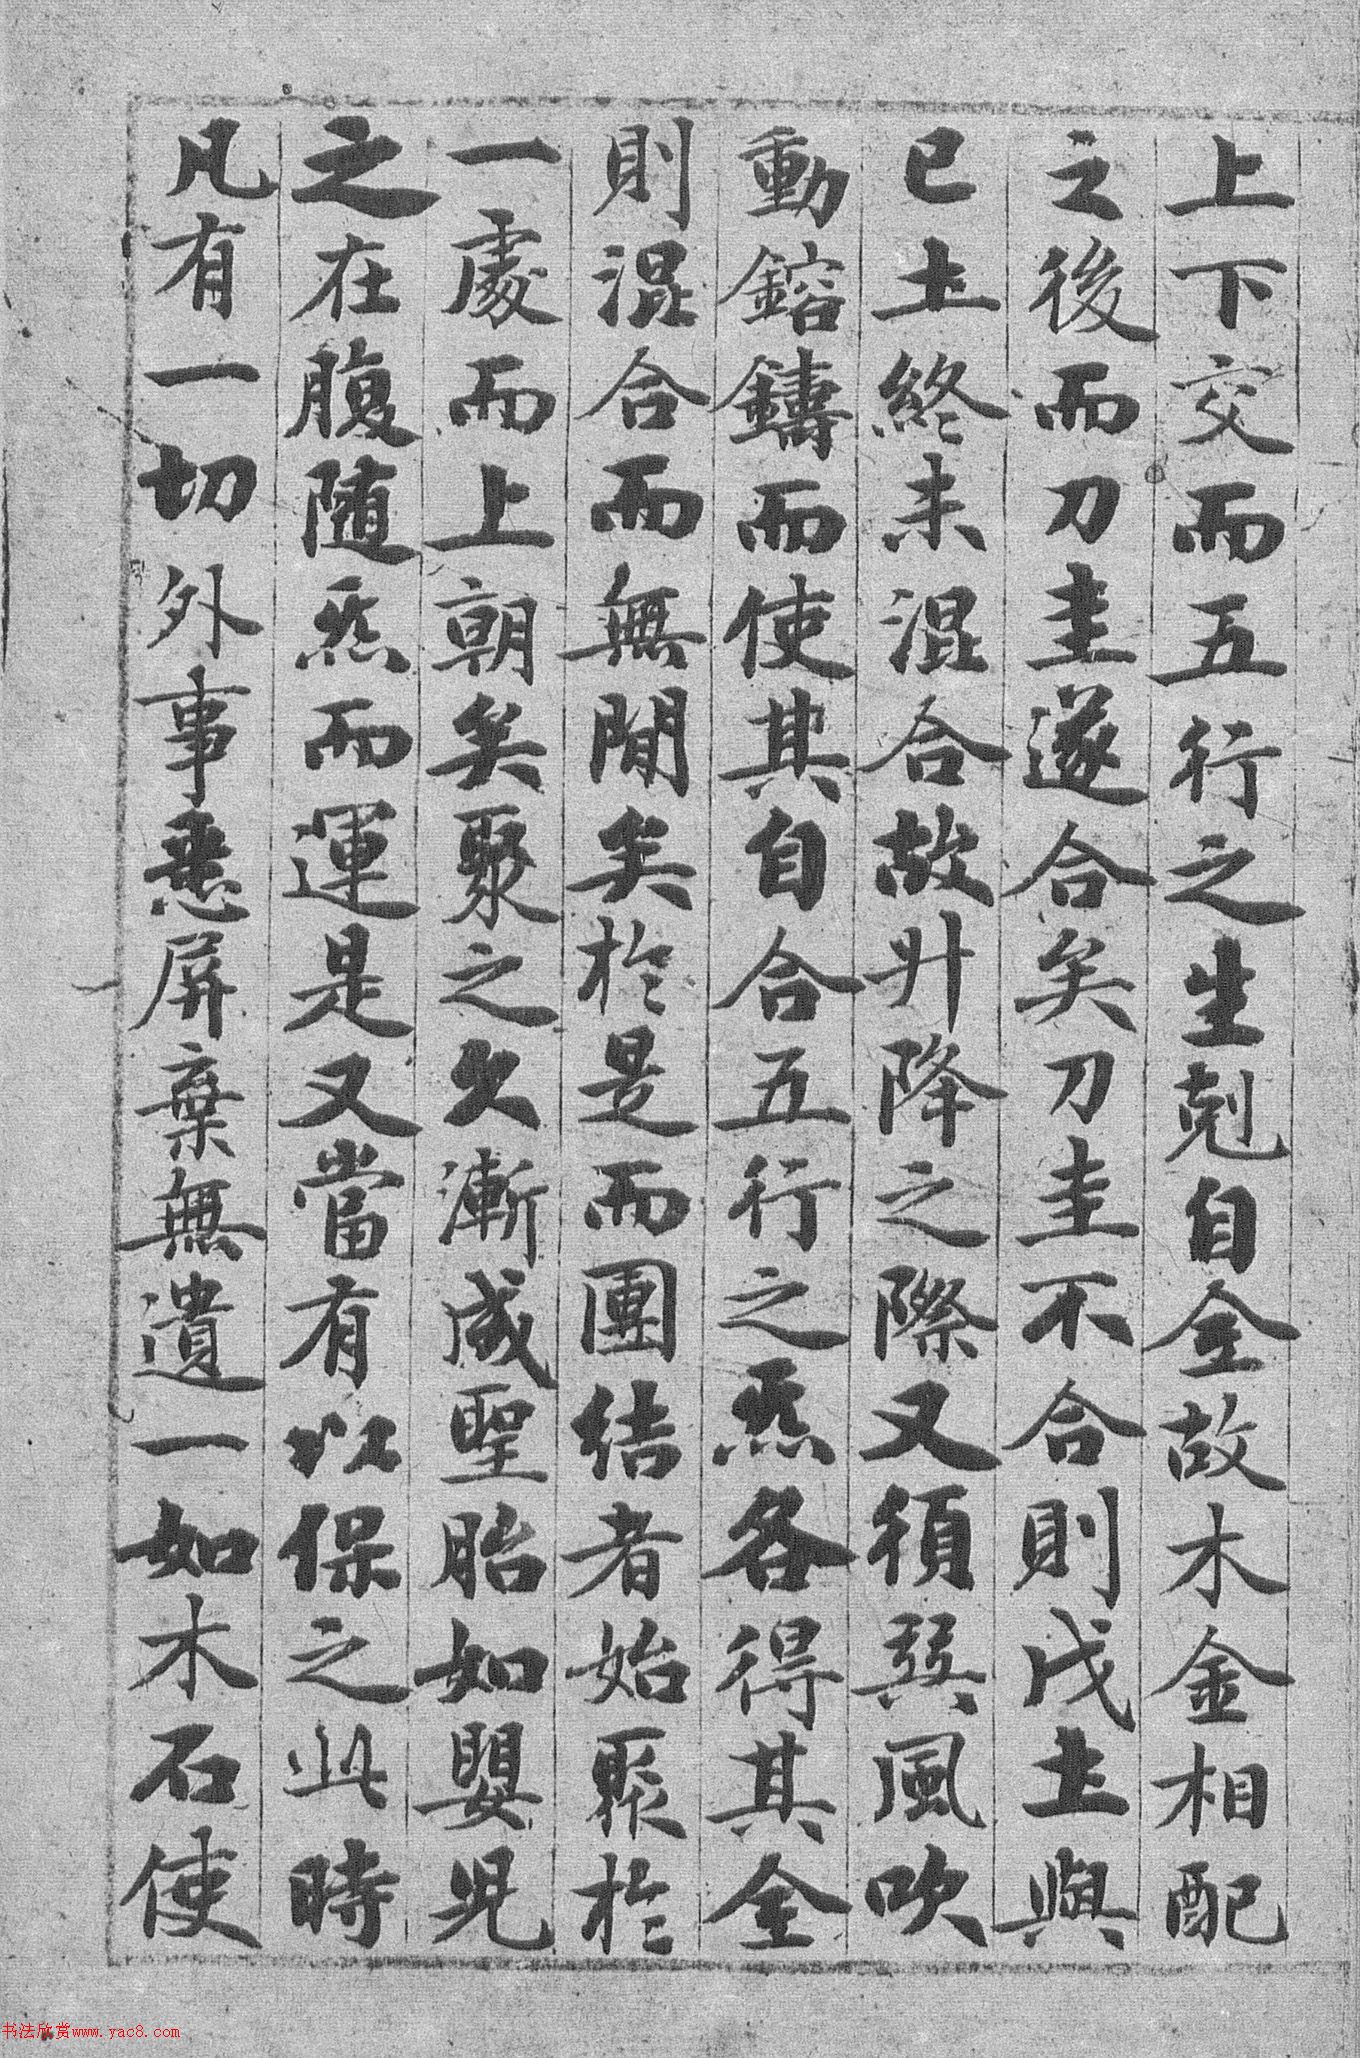 上下交而五行之生剋自全故木金相配
之後而刀圭遂合矣刀圭不合則戊土與
已土終未混合故升降之際又須巽風吹
動鎔鑄而使其自合五行之炁各得其全
則混合而無間矣於是而團結者始聚於
一處而上朝矣聚之久漸成聖胎如嬰児
之在腹随炁而運是又當有以保之此時
凡有一切外事悉屏棄無遺一如木石使
书法欣赏www.yac8.com